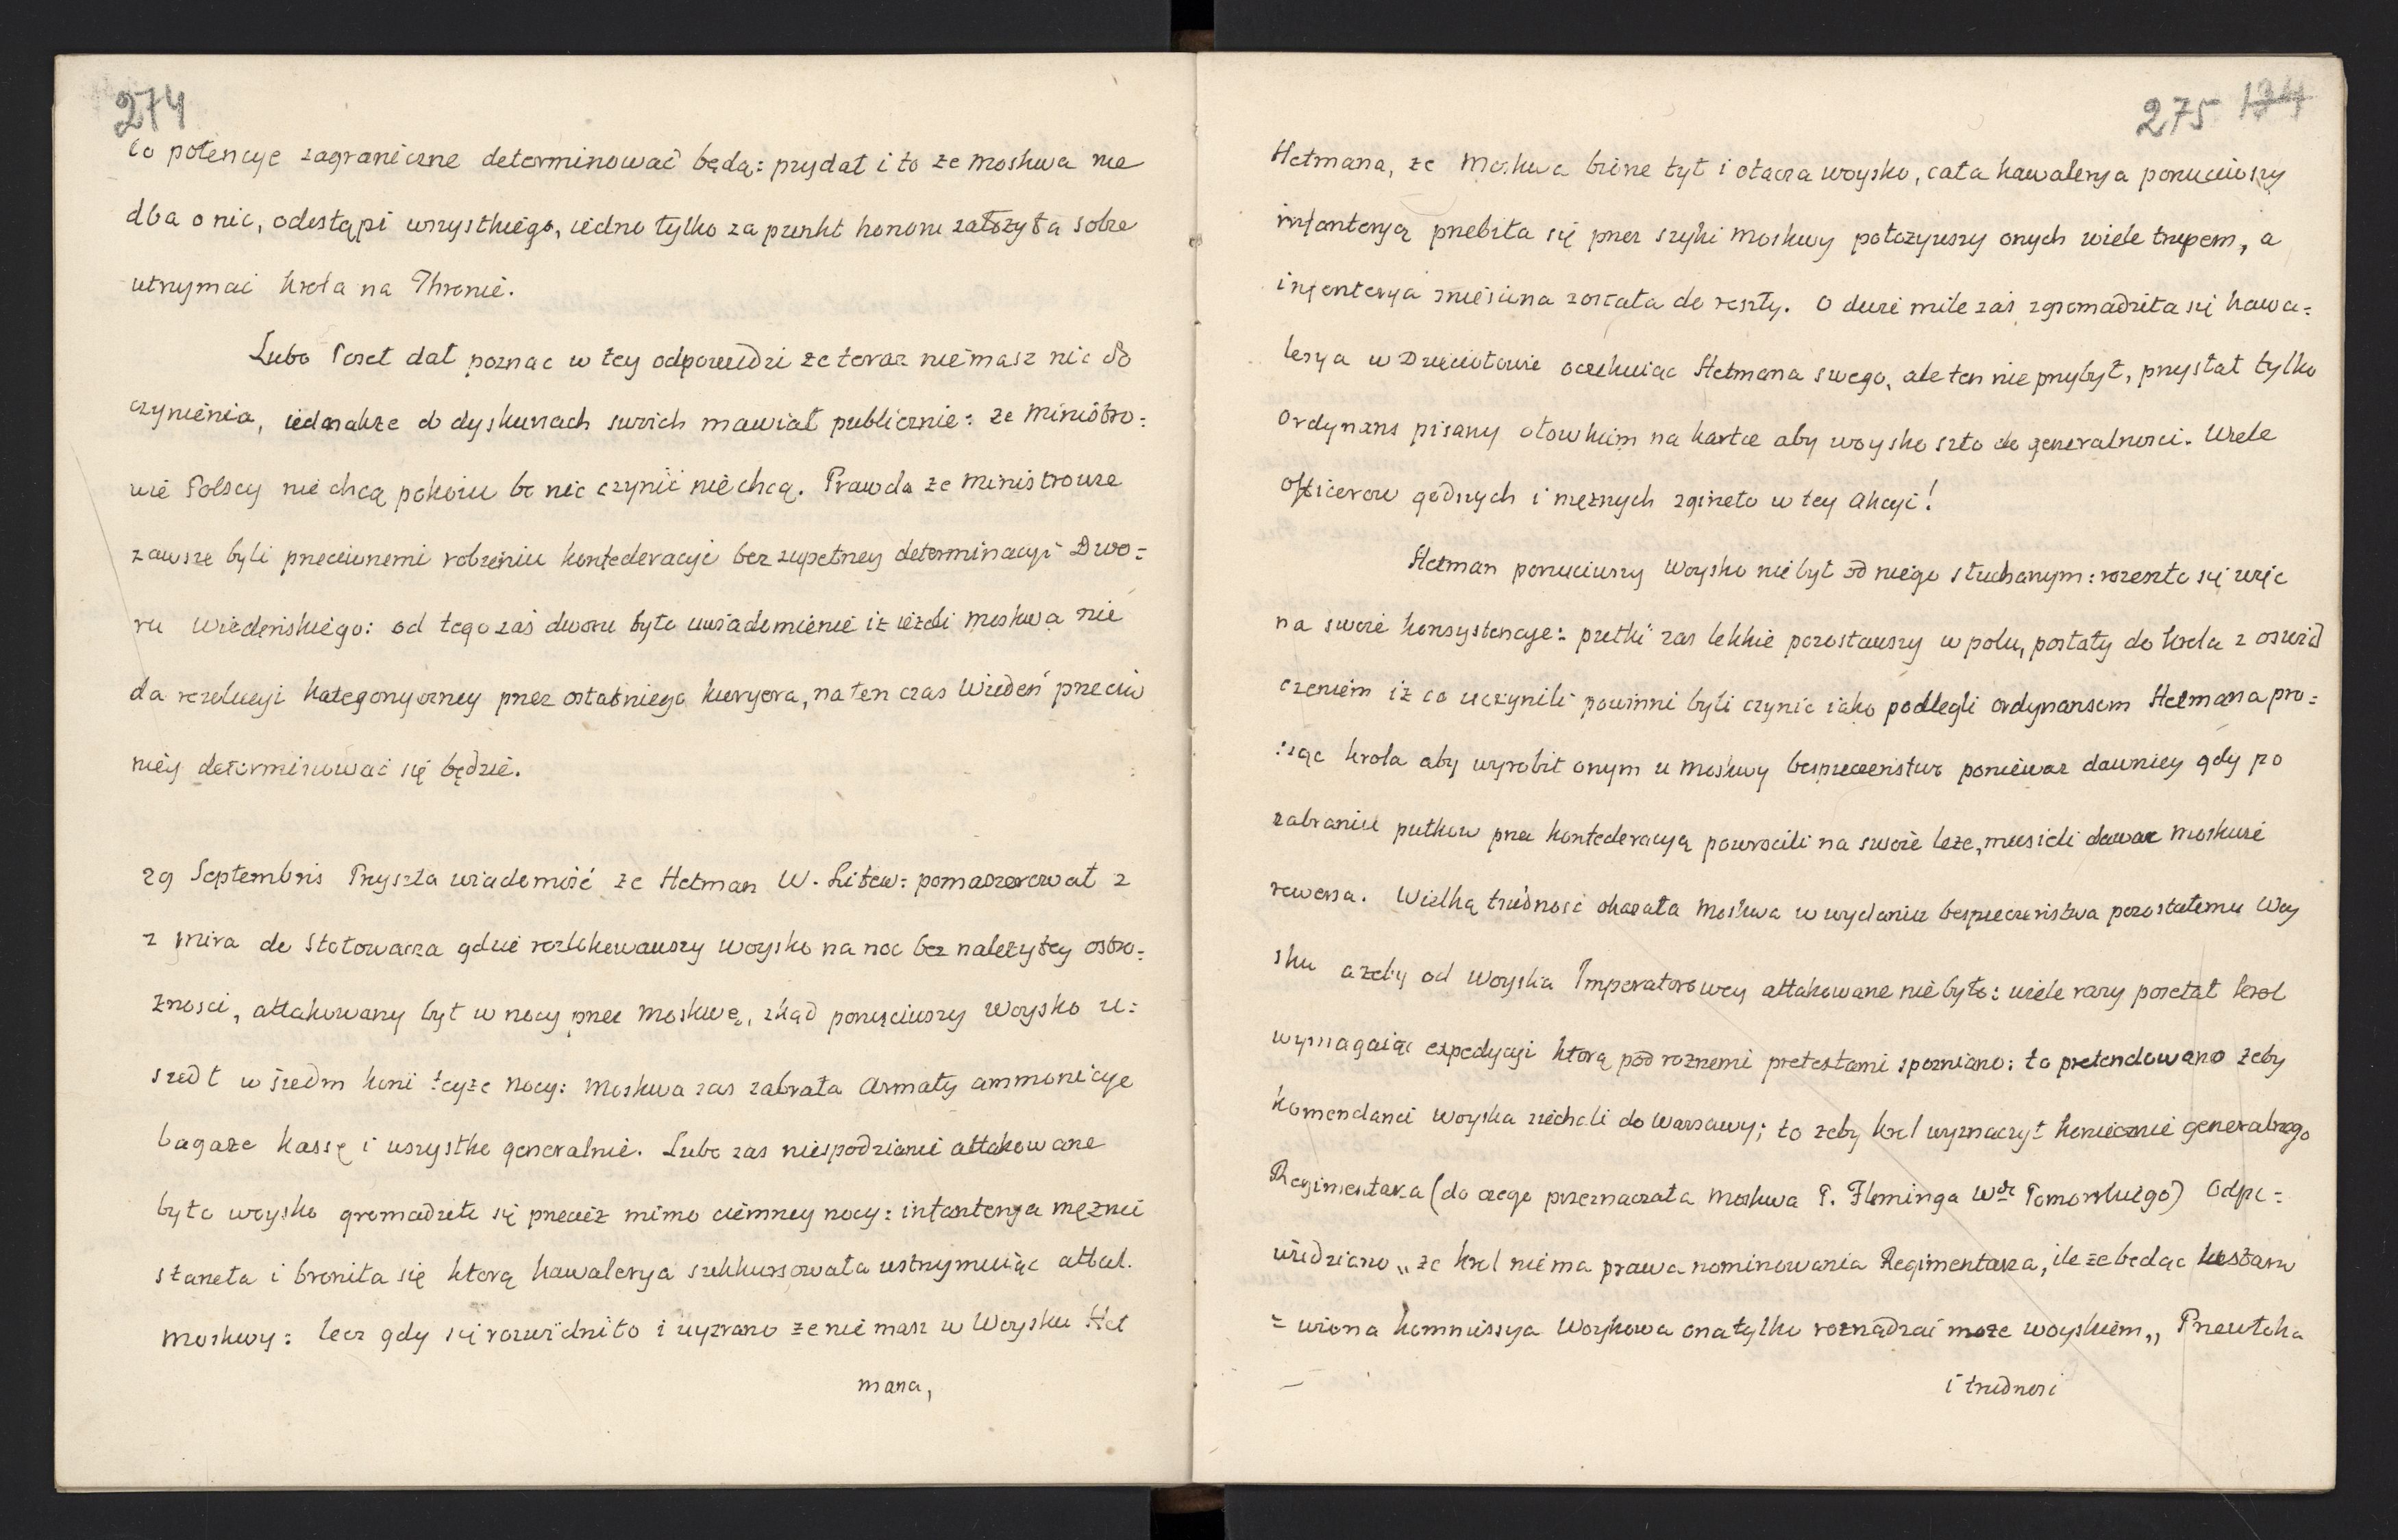 274
co potencye zagraniczne determinować będą: przydał i to że Moskwa nie
dba o nic, odestąpi wszystkiego, iedno tylko za punkt honoru założyła sobie
utrzymać krola na Thronie.
Lubo Poseł dał poznac w tey odpowiedzi że teraz niemasz nic do
czynienia, iednakże w dyskursach swoich mawiał publicznie: że Ministro=
wie Polscy nie chcą pokoiu bo nic czynić nie chcą. Prawda że Ministrowie
zawsze byli przeciwnemi robieniu konfederacyi bez zupełney determinacyi Dwo=
ru Wiedeńskiego: od tego zaś dworu było uwiadomienie iż ieżeli moskwa nie
da rezolucyi kategoryczney przez ostatniego kuryera, na ten czas Wiedeń przeciw
niey determinować się będzie.
29 Septembris Przyszła wiadomość że Hetman W. Litew: pomaszerował z
z Mira do Stołowicza gdzie rozlokowawszy woysko na noc bez należytey ostro=
żnosci, attakowany był w nocy przez Moskwę, zkąd porzuciwszy Woysko u=
szedł w siedm koni teyże nocy: Moskwa zas zabrała Armaty ammonicye
bagaże kassę i wszystko generalnie. Lubo zas niespodzianie attakowane
było woysko gromadziło się przeciż mimo ciemney nocy: infanterya mężnie
staneła i broniła się ktorą kawalerya sukkursowała wstrzymuiąc attak.
Moskwy: lecz gdy się rozwidniło i uyzrano że nie masz w Woysku Het
mana,
275 134
Hetmana, że Moskwa bierze tył i otacza woysko, cała kawalerya porzuciwszy
infanteryą przebiła się przez szyki Moskwy położywszy onych wiele trupem, a
infanterya zniesiona została do reszty. O dwie mile zaś zgromadziła się kawa=
lerya w Dzięciołowie oczekuiąc Hetmana swego, ale ten nie przybył, przysłał tylko
Ordynans pisany ołowkiem na kartce aby woysko szło do generalnosci. Wiele
Officerow godnych i mężnych zgineło w tey Akcyi!
Hetman porzuciwszy Woysko nie był od niego słuchanym: rozeszło się więc
na swoie konsystencye: pułki zas lekkie pozostawszy w polu, posłały do krola z oswiad
czeniem iż co uczynili powinni byli czynic iako podlegli ordynansom Hetmana pro=
:sząc krola aby wyrobił onym u Moskwy bespieczenstwo poniewaz dawniey gdy po
zabraniu pułkow przez konfederacyą powrocili na swoie leże, musieli dawac Moskwie
rewersa. Wielką trudnosc okazała Moskwa w wydaniu bespieczenstwa pozostałemu Woy
sku azeby od Woyska Imperatorowey attakowane nie było: wiele razy posełał krol
wymagaiąc expedycyi ktorą pod roznemi pretextami spozniano: to pretendowano żeby
Komendanci Woyska ziechali do Warszawy; to żeby krol wyznaczył koniecznie generalnego
Regimentarza (do czego przeznaczała Moskwa P. Fleminga Wdę Pomorskiego) Odpo=
wiedziano „że krol nie ma prawa nominowania Regimentarza, ile że będąc ustano
=wiona kommissya Woyskowa ona tylko rozrządzać może woyskiem„ Przewłoka
i trudnosc